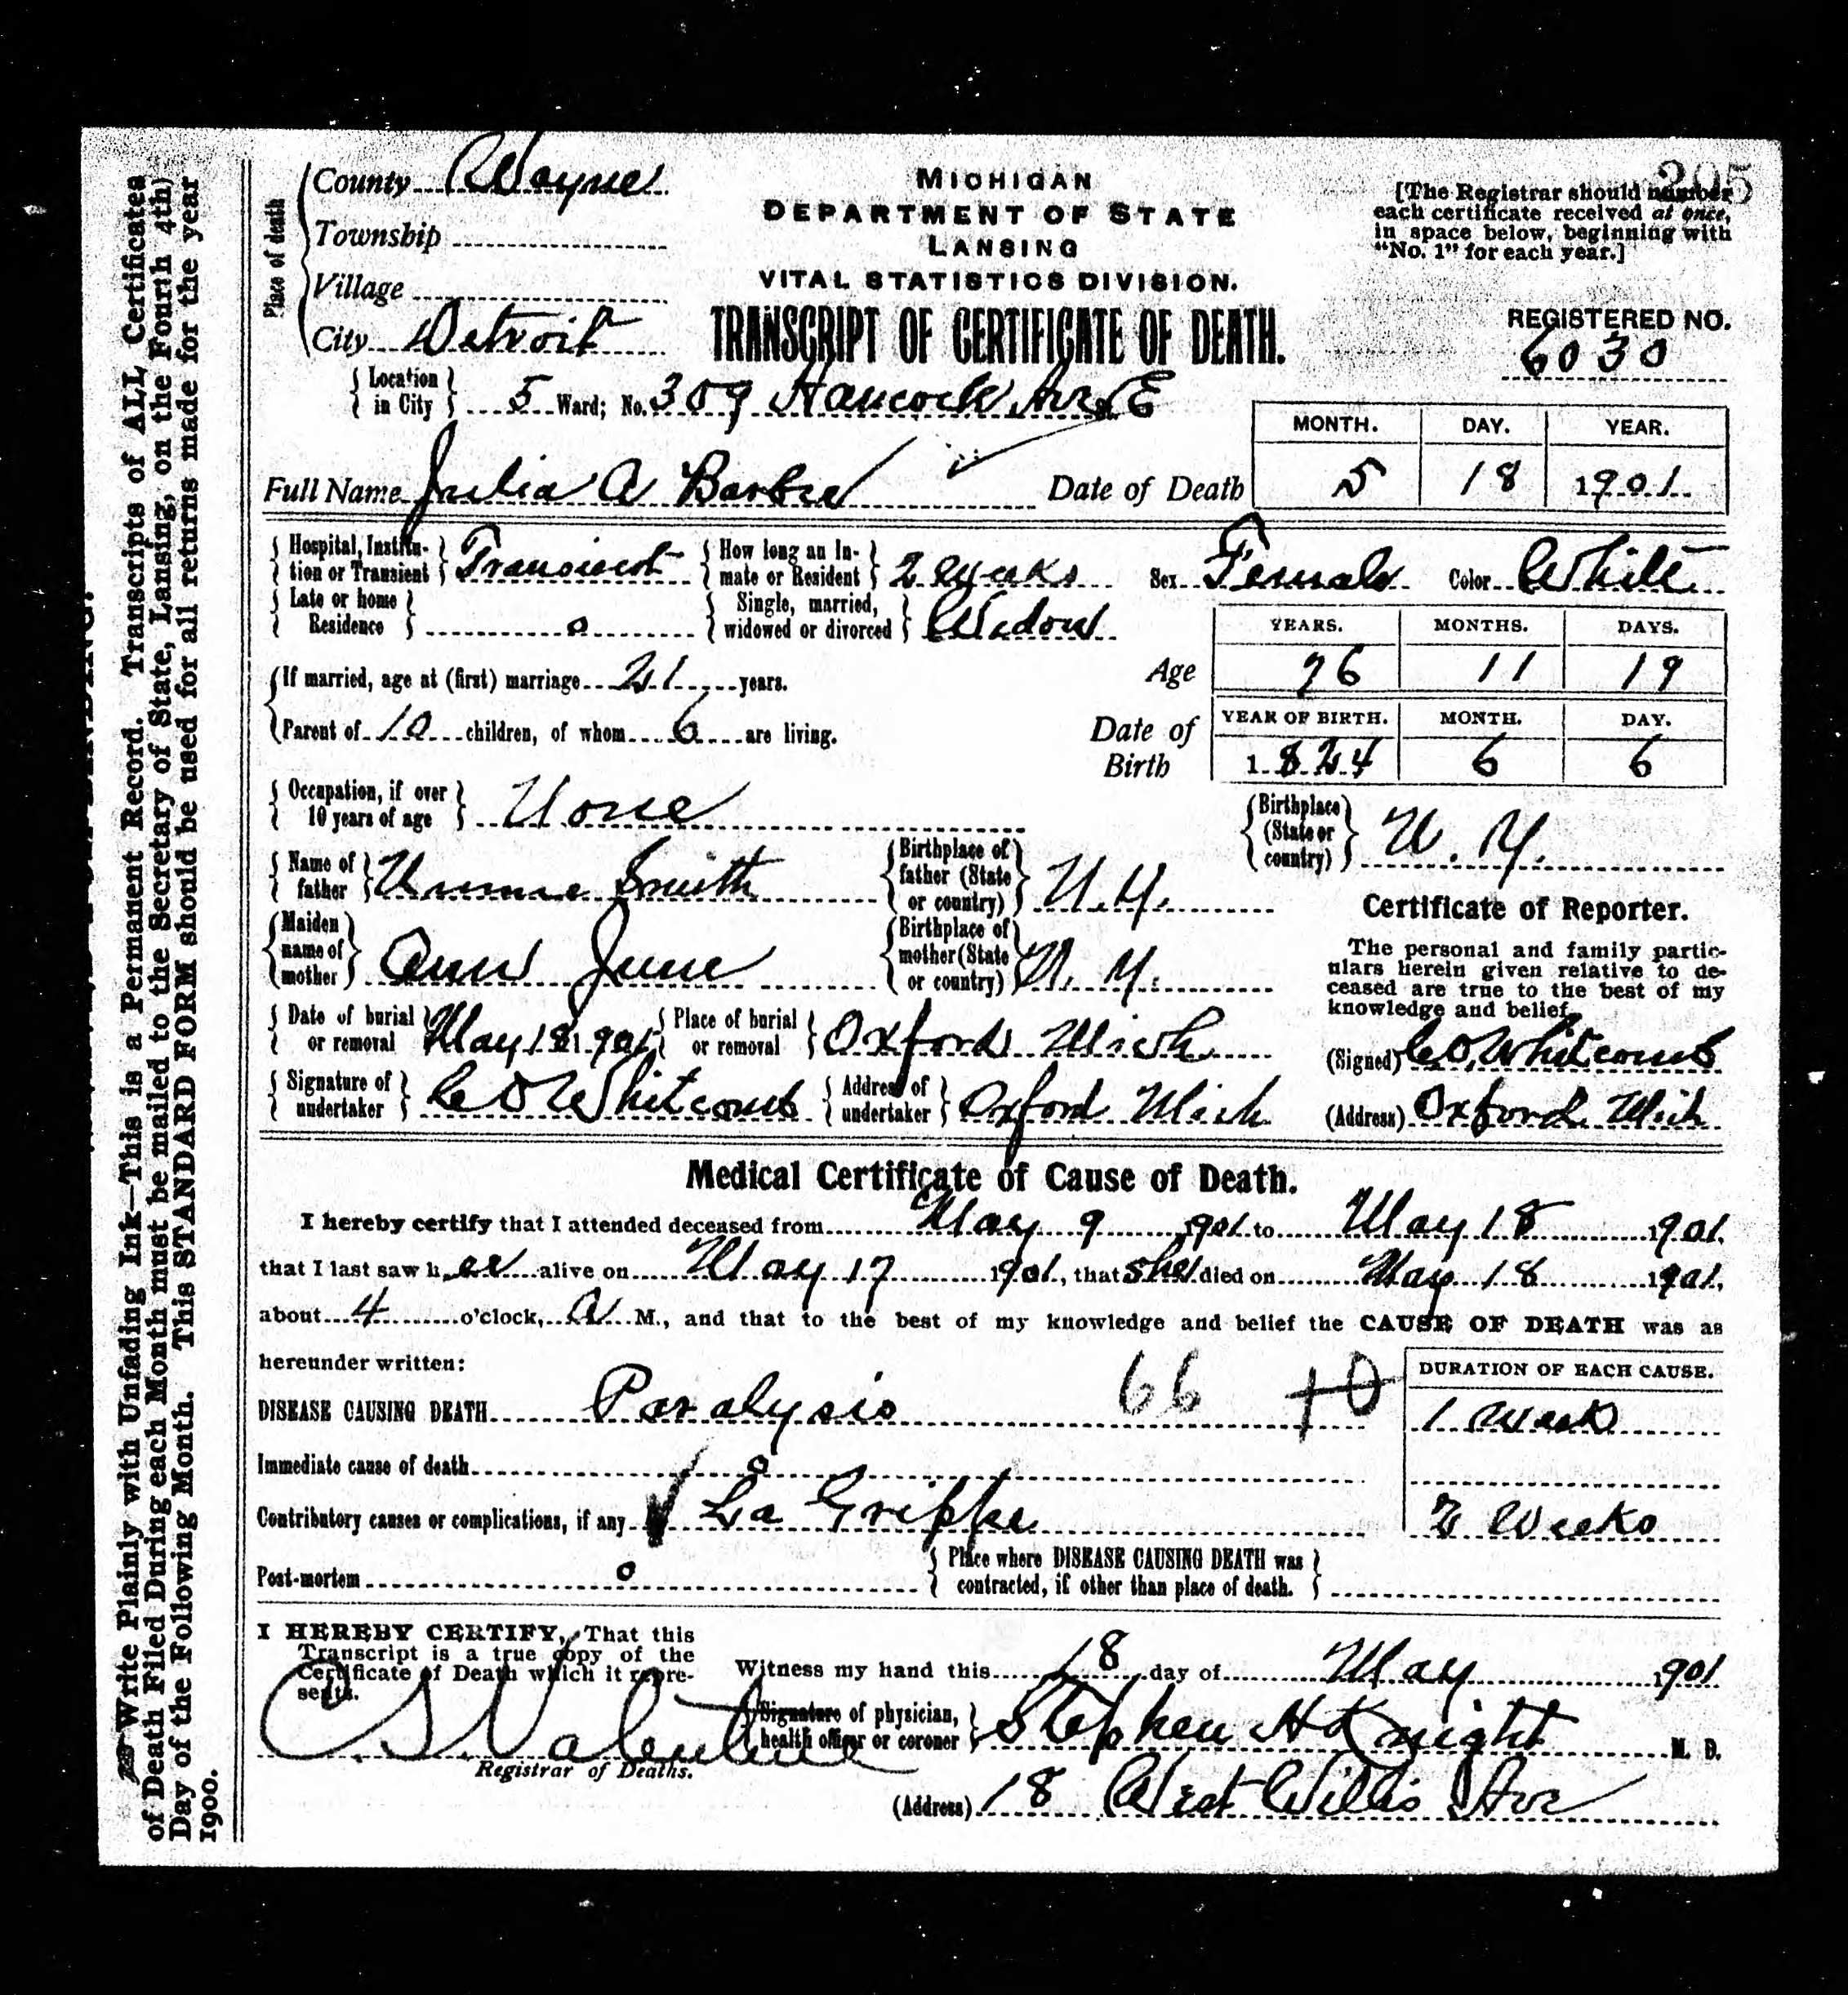 295
County Wayne
Township
Village
City Detroit
Place of death
MICHIGAN
DEPARTMENT OF STATE
LANSING
VITAL STATISTICS DIVISION.
TRANSCRIPT OF CERTIFICATE OF DEATH.
[The Registrar should number
each certificate received at once,
in space below, beginning with
"No. 1" for each year.]
REGISTERED NO.
6030
Location in City 5 Ward; No. 309 Hancock Ave E
Full Name Julia A Barber
Date of Death
MONTH. DAY. YEAR.
5 18 1901
Hospital, Institution or Transient Transient
How long an Inmate or Resident 2 weeks
Sex Female Color White
Late or home Residence o
Single, married, widowed or divorced Widow
If married, age at (first) marriage 21 years.
Age
YEARS. MONTHS. DAYS.
76 11 19
Parent of 10 children, of whom 6 are living.
Date of Birth
YEAR OF BIRTH. MONTH. DAY.
1824 6 6
Occupation, if over 10 years of age None
Birthplace (State or country) N. Y.
Name of father Smith
Birthplace of father (State or country) N. Y.
Maiden name of mother Ann June
Birthplace of mother (State or country) N. Y.
Certificate of Reporter.
The personal and family partic-
ulars herein given relative to de-
ceased are true to the best of my
knowledge and belief.
Date of burial or removal May 18 1901
Place of burial or removal Oxford Mich
(Signed) C O Whitcomb
Signature of undertaker C O Whitcomb
Address of undertaker Oxford Mich
(Address) Oxford Mich
Medical Certificate of Cause of Death.
I hereby certify that I attended deceased from May 9 1901 to May 18 1901.
that I last saw her alive on May 17 1901, that she died on May 18 1901,
about 4 o'clock, A M., and that to the best of my knowledge and belief the CAUSE OF DEATH was as
hereunder written:
DURATION OF EACH CAUSE.
DISEASE CAUSING DEATH Paralysis 66 10 1 week
Immediate cause of death o
Contributory causes or complications, if any La Grippe 2 Weeks
Post-mortem o
Place where DISEASE CAUSING DEATH was contracted, if other than place of death.
I HEREBY CERTIFY, That this
Transcript is a true copy of the
Certificate of Death which it repre-
sents.
C. S. Valentine
Registrar of Deaths.
Witness my hand this 18 day of May 1901
Signature of physician, health officer or coroner Stephen H Knight M. D.
(Address) 18 West Willis Ave
Write Plainly with Unfading Ink—This is a Permanent Record. Transcripts of ALL Certificates
of Death Filed During each Month must be mailed to the Secretary of State, Lansing, on the Fourth (4th)
Day of the Following Month. This STANDARD FORM should be used for all returns made for the year
1900.